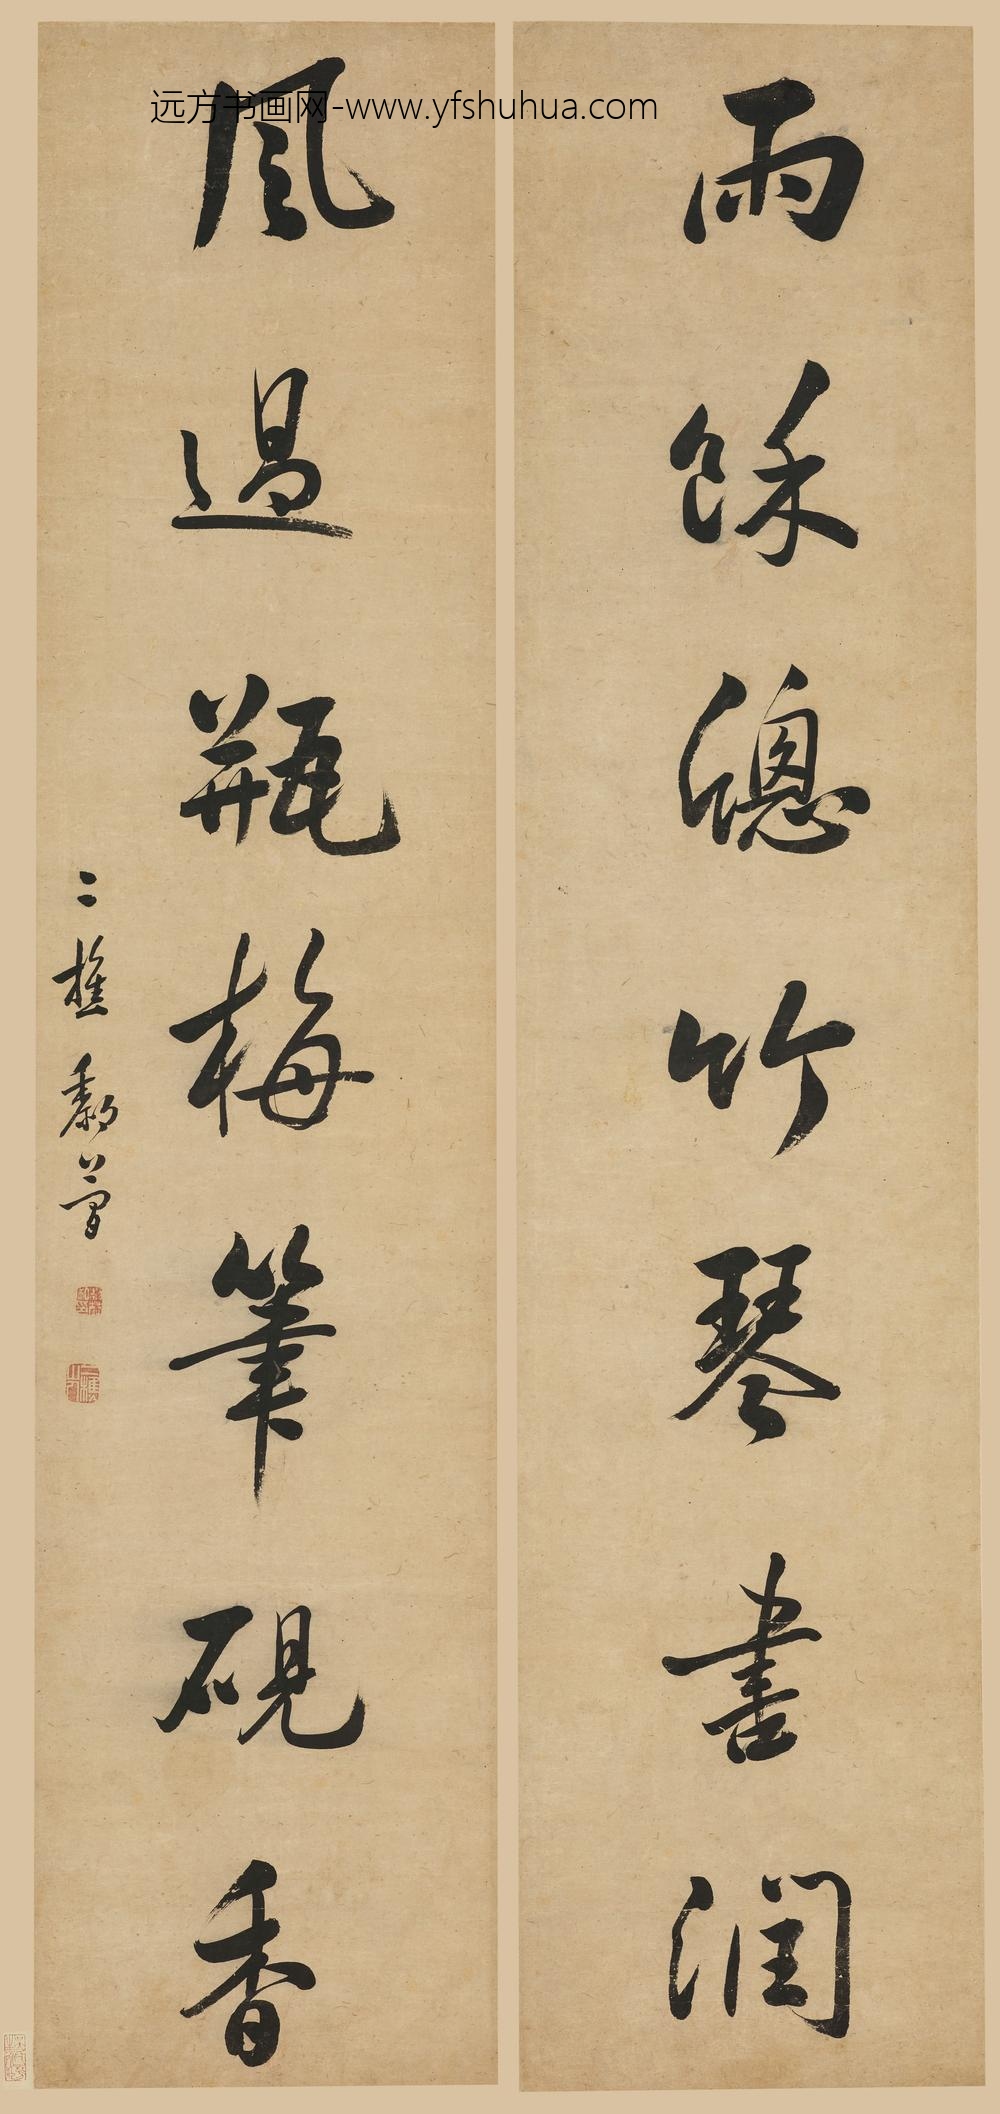 远方书画网-www.yfshuhua.com
雨餘牕竹琴書潤
風過瓶梅筆硯香
二樵黎簡